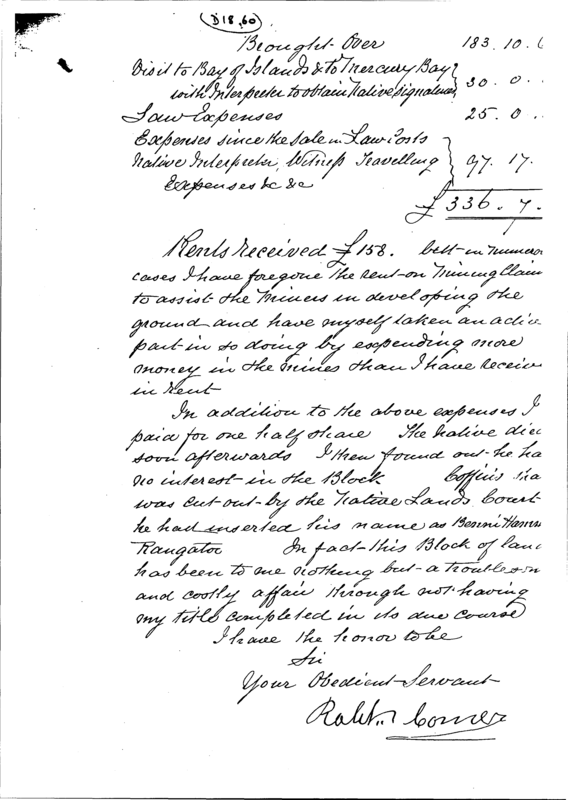 D18.60
Brought Over 183.10.
Visit to Bay of Islands & to Mercury Bay
with Interpreter to obtain Native signatures 30.0.
Law Expenses 25.0.
Expenses since the sale in Law Costs
Native Interpreter, Witness Travelling 97.17.
Expenses &c &c
£336.7.
Rents received £158. but in
cases I have foregone the rent on Mining Claim
to assist the Miners in developing the
ground and have myself taken an
part in so doing by expending more
money in the mines than I have
in rent
In addition to the above expenses I
paid for one half share The Native
soon afterwards I then found out he ha
no interest in the Block Coffins
was cut out by the Native Lands Court
he had inserted his name as
In fact this Block of lan
has been to me nothing but a
and costly affair through not having
my title completed in its due course
I have the honor to be
Sir
Your Obedient Servant